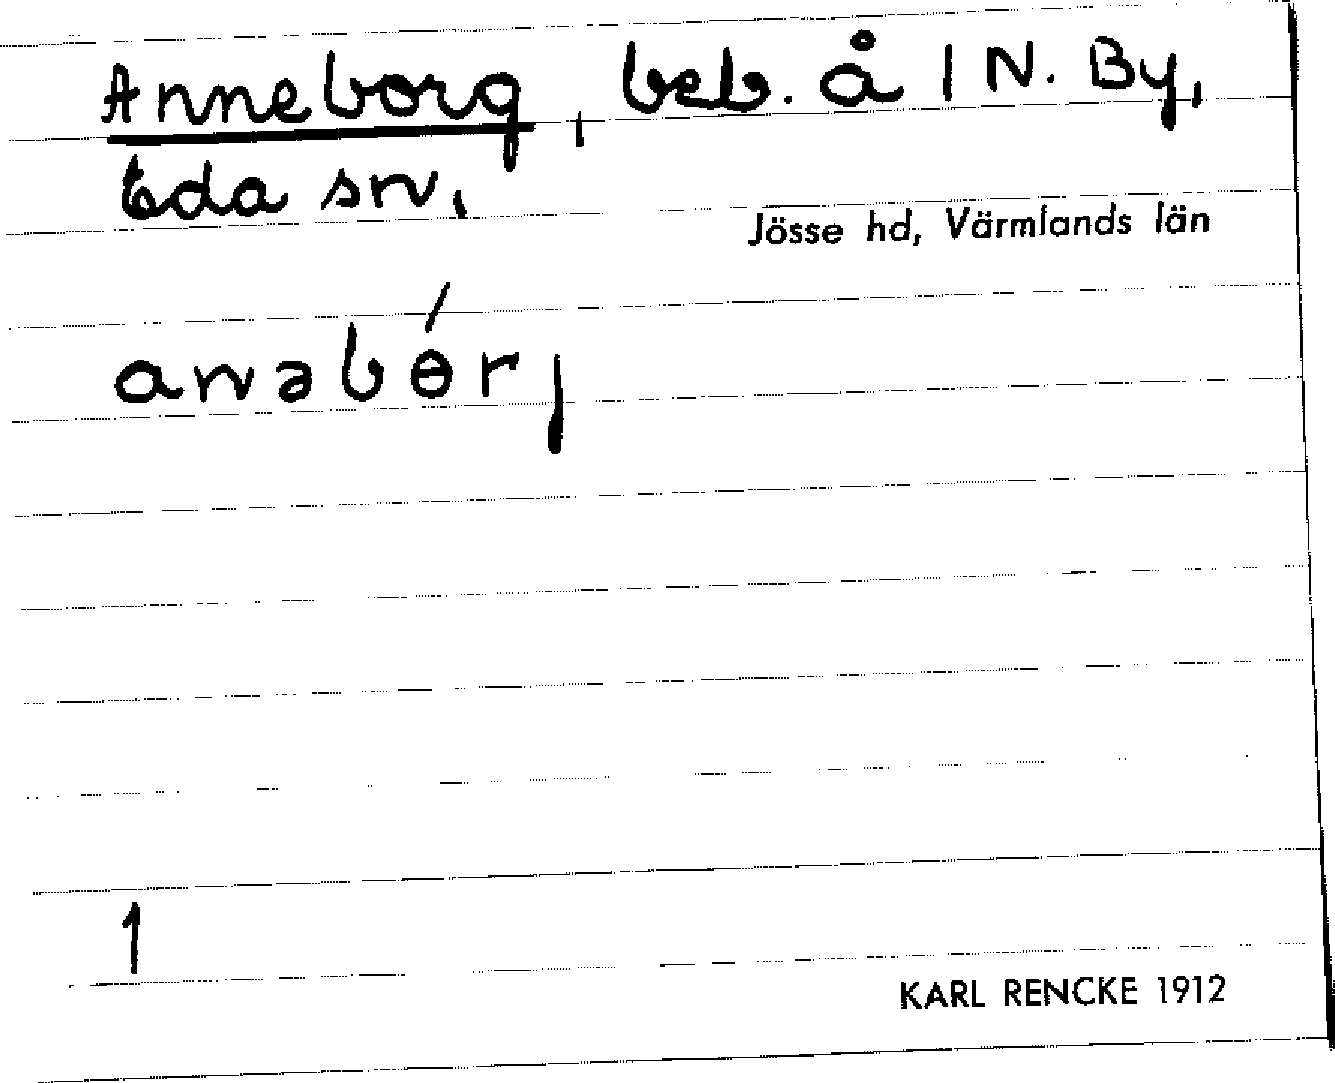 Anneborg, beb. å 1 N. By,
Eda sn,
Jösse hd, Värmlands län
anəbɵ́rj
1
KARL RENCKE 1912